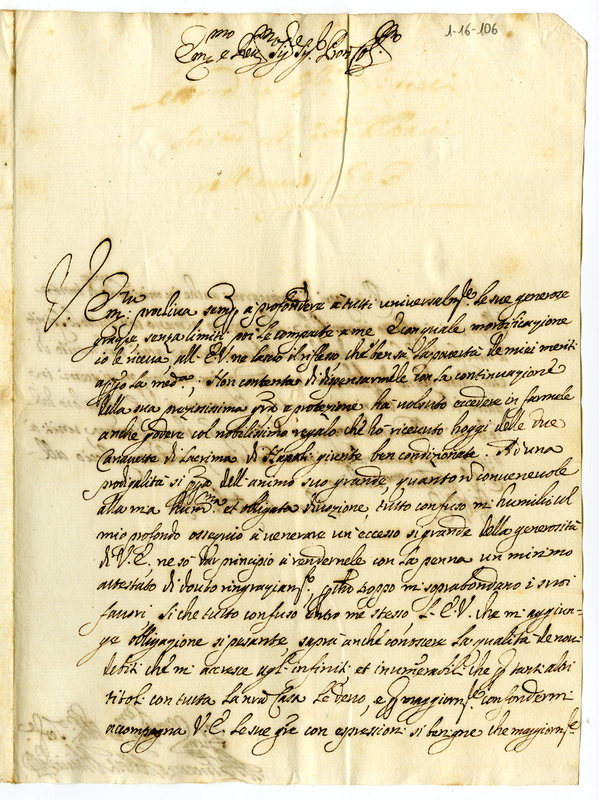 1-16-106
Em.mo e Rev.mo Sig.r Sig.r Pron Col.mo
V. Em.za proclive semp.e a profondere à tutti universalm.te le sue generose
grazie senza limiti poi le comparte a me. Con quale mortificazione
io le riceva, all'E.V. ne lascio il riflesso che ben sà la povertà de miei meriti
app.o la med.ma; Non contenta di dispensarmele con la continuazione
della sua pregiatissima gra e protezione hà voluto eccedere in farmele
anche godere col nobilissimo regalo che hò ricevuto hoggi delle due
di Lacrima di Napoli giunte ben condizionate. Ad una
prodigalità si dell'animo suo grande, quanto convenevole
alla mia hum.ma et obligata divozione, tutto confuso m'humilio col
mio profondo ossequio à venerare un'eccesso si grande della generosità
di V.E. ne sò dar principio à rendernele con la penna un minimo
attestato di dovuto ringraziam.to, troppo mi soprabondano i suoi
favori. Si che tutto confuso entro me stesso L'E.V. che m'aggiun-
ge obligazione si pesante saprà anche conoscere la qualità de nuovi
debiti che m'accresce agl'infiniti et innumerabili che p tanti altri
titoli con tutta la nra Casa le devo, e p maggiorm.te confondermi
accompagna V.E. le sue gre con espressioni si benigne che maggiorm.te